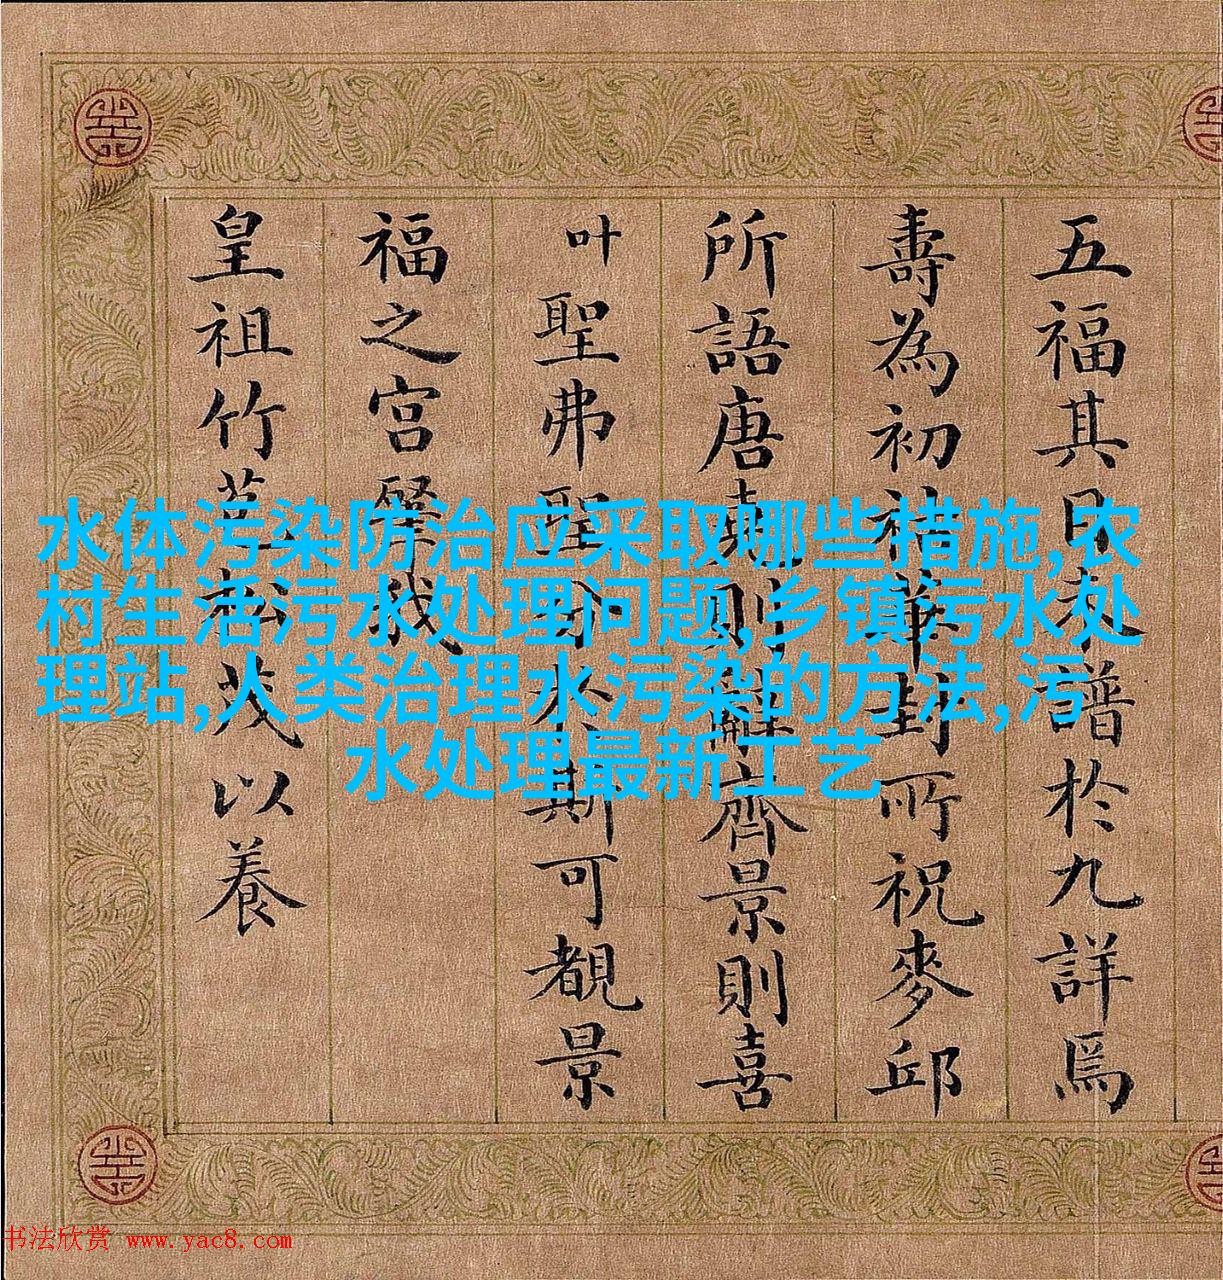 五福其日譜於九詳焉
壽為初祉華封所祝麥邱
所語唐堯則辭齊景則喜
叶聖弗聖於斯可覩景
福之宮肇我
皇祖竹苞松茂以養
水体污染防治应采取哪些措施,农
村生活污水处理问题,乡镇污水处
理站,人类治理水污染的方法,污
水处理最新工艺
书法欣赏 www.yac8.com